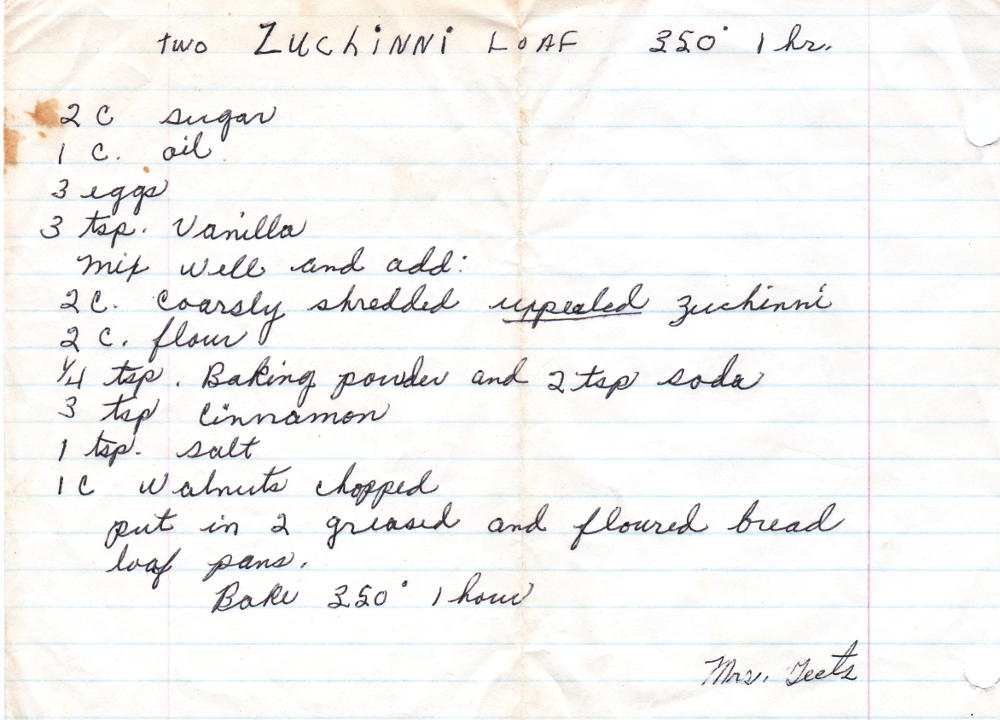 two ZUCHiNNi LOAF 350° 1 hr.
2 C sugar
1 C. oil
3 eggs
3 tsp. Vanilla
mix well and add:
2 C. coarsly shredded uppealed zuchinni
2 C. flour
1/4 tsp. Baking powder and 2 tsp soda
3 tsp Cinnamon
1 tsp. salt
1 C walnuts chopped
put in 2 greased and floured bread
loaf pans.
Bake 350° 1 hour
Mrs. Teets